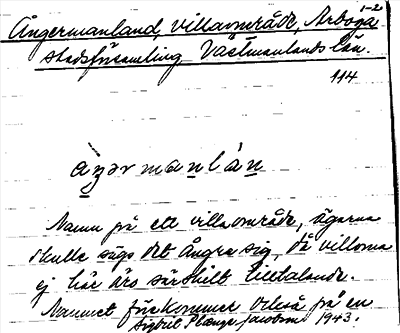 1-2
Ångermanland, villaområde, Arboga
stadsförsamling Västmanlands län.
114
åŋərmanlán
Namn på ett villaområde, ägarna
skulle sägs det ångra sig, då villorna
ej här äro särskilt tilltalande.
Namnet förekommer också på en
Sigrid Jacobson 1943.